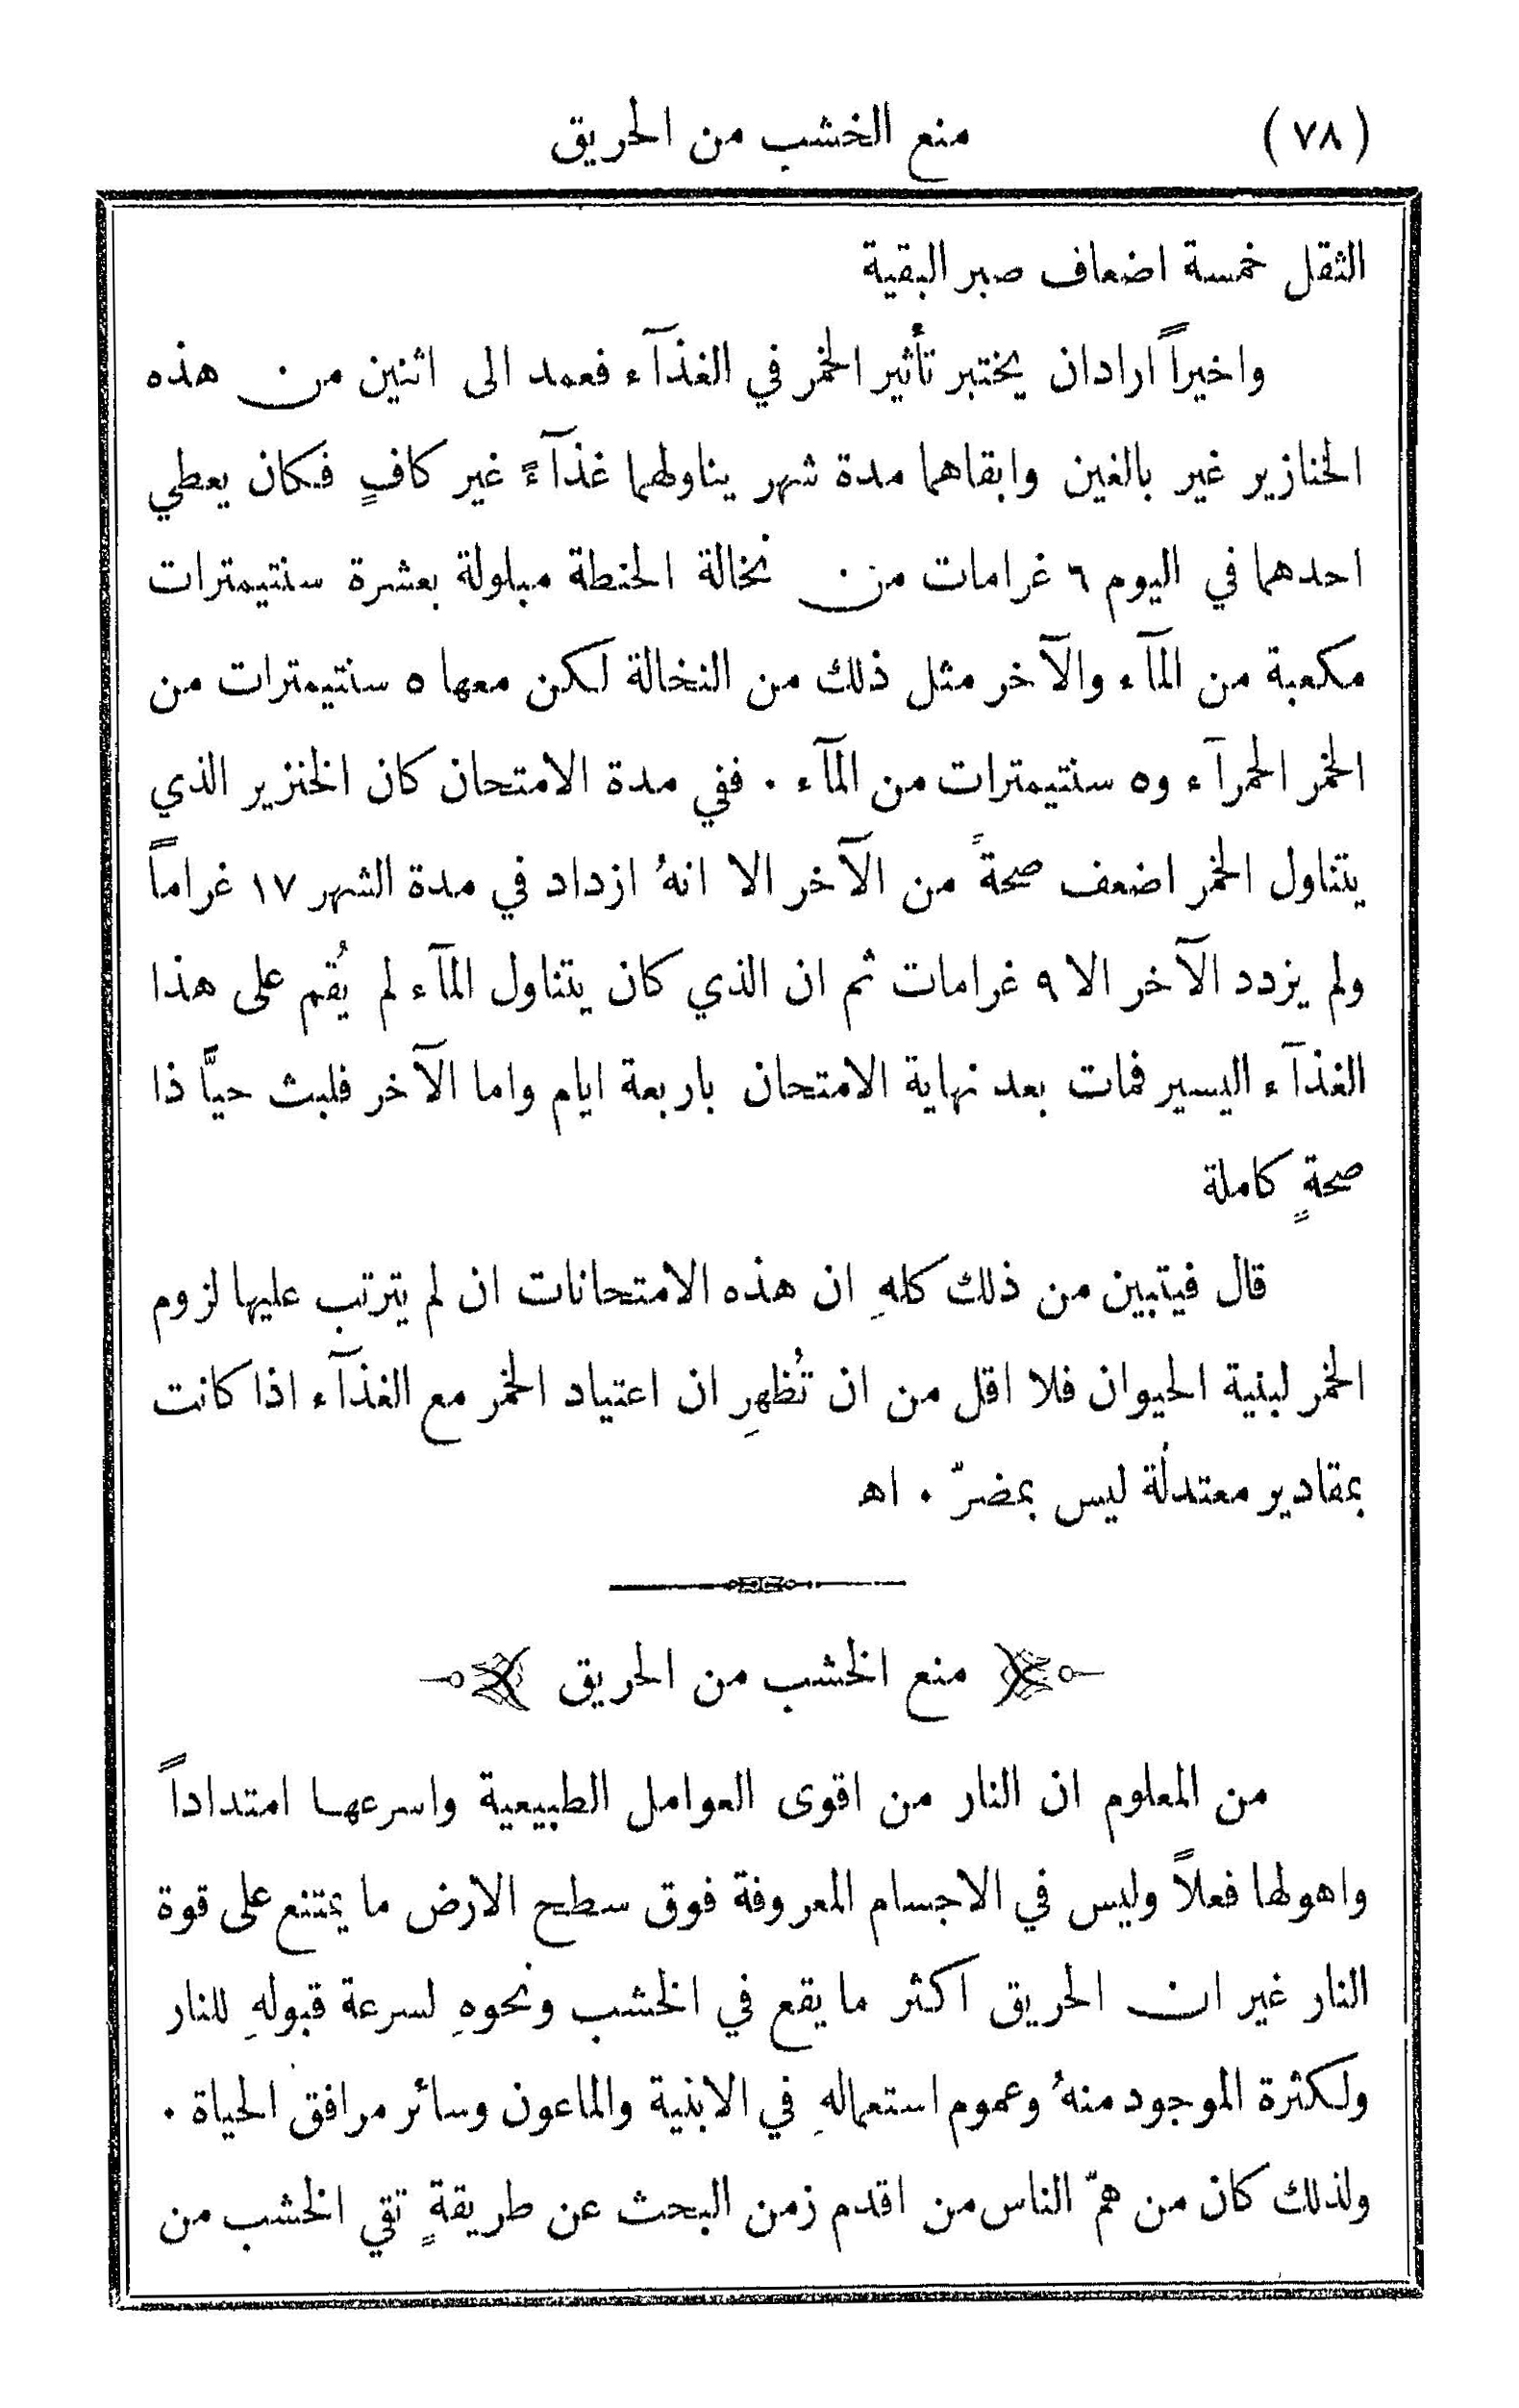 (٧٨) منع الخشب من الحريق
الثقل خمسة اضعاف صبر البقية
واخيراً اراد ان يختبر تأثير الخمر في الغذآء فعمد الى اثنين من هذه
الخنازير غير بالغين وابقاهما مدة شهر يناولهما غذآءً غير كافٍ فكان يعطي
احدهما في اليوم ٦ غرامات من نخالة الحنطة مبلولة بعشرة سنتيمترات
مكعبة من المآء والآخر مثل ذلك من النخالة لكن معها ٥ سنتيمترات من
الخمر الحمرآء و٥ سنتيمترات من المآء . ففي مدة الامتحان كان الخنزير الذي
يتناول الخمر اضعف صحةً من الآخر الا انهُ ازداد في مدة الشهر ١٧ غراماً
ولم يزدد الآخر الا ٩ غرامات ثم ان الذي كان يتناول المآء لم يُقم على هذا
الغذآء اليسير فمات بعد نهاية الامتحان باربعة ايام واما الآخر فلبث حيًّا ذا
صحةٍ كاملة
قال فيتبين من ذلك كلهِ ان هذه الامتحانات ان لم يترتب عليها لزوم
الخمر لبنية الحيوان فلا اقل من ان تُظهِر ان اعتياد الخمر مع الغذآء اذا كانت
بمقادير معتدلة ليس بمضرّ . اه
منع الخشب من الحريق
من المعلوم ان النار من اقوى العوامل الطبيعية واسرعها امتداداً
واهولها فعلاً وليس في الاجسام المعروفة فوق سطح الارض ما يمتنع على قوة
النار غير ان الحريق اكثر ما يقع في الخشب ونحوهِ لسرعة قبولهِ للنار
ولكثرة الموجود منهُ وعموم استعمالهِ في الابنية والماعون وسائر مرافق الحياة .
ولذلك كان من همّ الناس من اقدم زمن البحث عن طريقةٍ تقي الخشب من